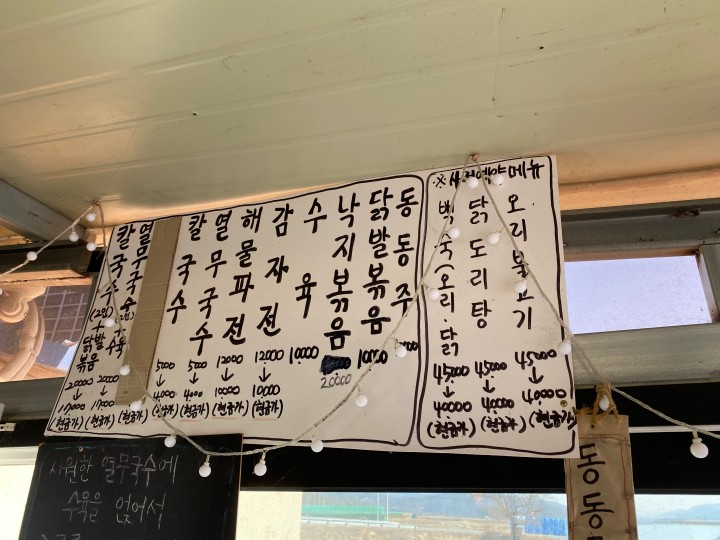 칼국수(2인)+닭발볶음 20000 ↓ 17000 (현금가)
열무국수(2인)+수육 20000 ↓ 17000 (현금가)
(현금가)
칼국수 5000 ↓ 4000 (현금가)
열무국수 5000 ↓ 4000 (현금가)
해물파전 12000 ↓ 10000 (현금가)
감자전 12000 ↓ 10000 (현금가)
수육 10000
낙지볶음 20000
닭발볶음 10000
동동주
※사전예약메뉴
백숙(오리·닭) 45000 ↓ 40000 (현금가)
닭도리탕 45000 ↓ 40000 (현금가)
오리불고기 45000 ↓ 40000 (현금가)
시원한 열무국수에
수육을 얹어서
동동